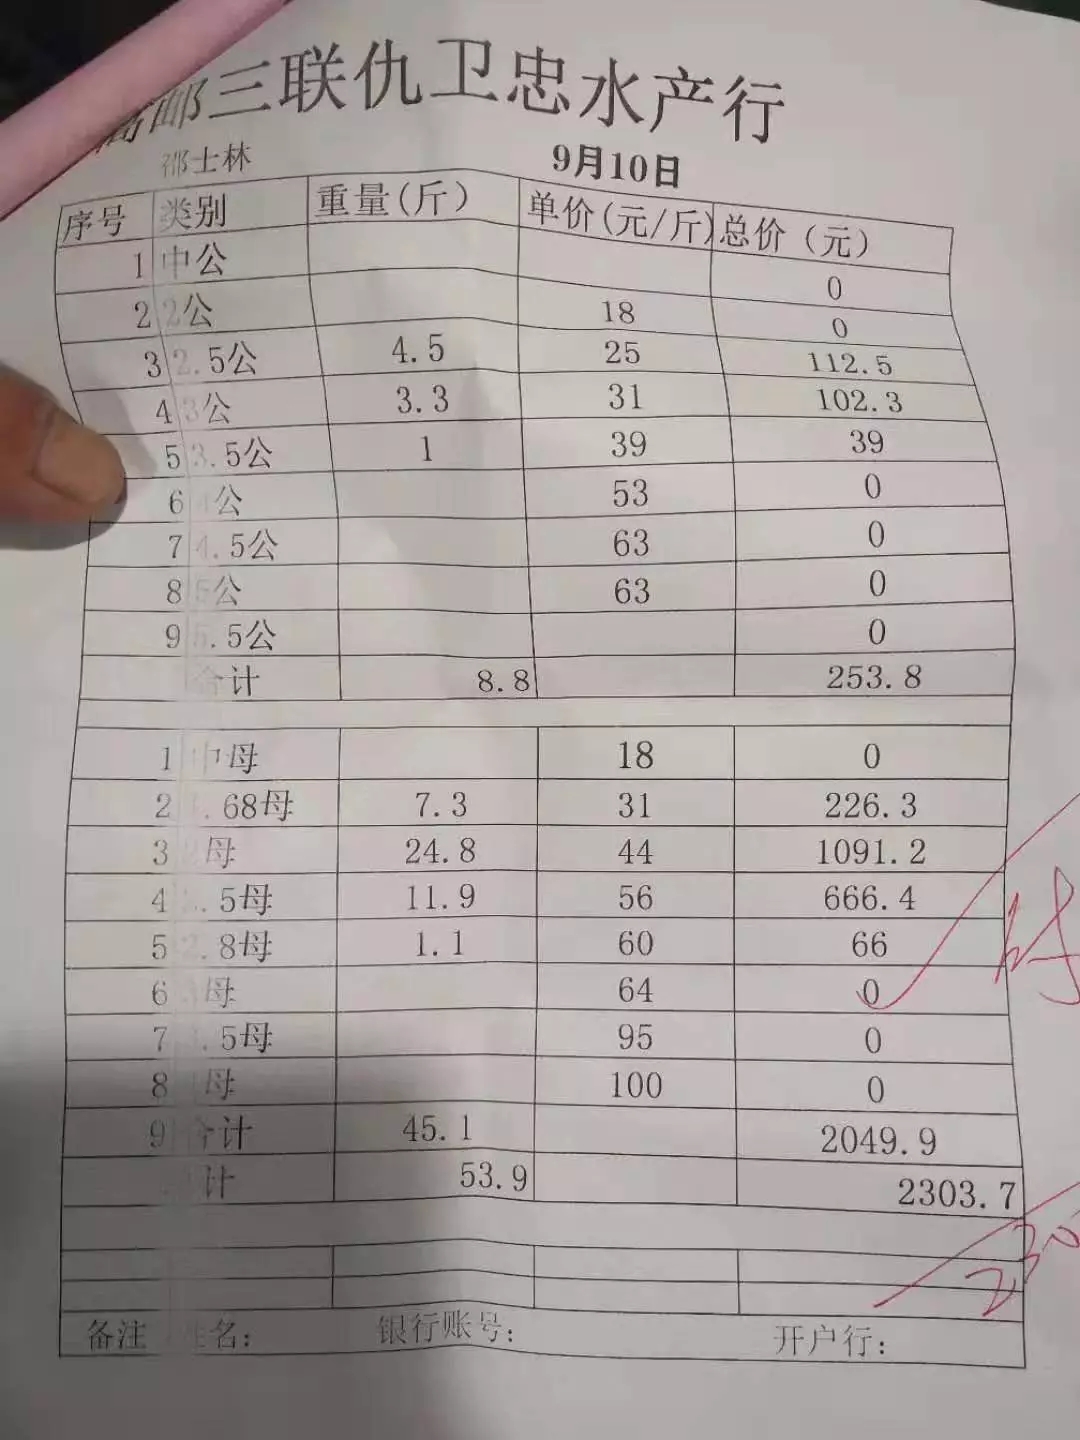 高邮三联仇卫忠水产行
邵士林 9月10日
序号 类别 重量(斤) 单价(元/斤) 总价（元）
1 中公 0
2 2公 18 0
3 2.5公 4.5 25 112.5
4 3公 3.3 31 102.3
5 3.5公 1 39 39
6 4公 53 0
7 4.5公 63 0
8 5公 63 0
9 5.5公 0
合计 8.8 253.8
1 中母 18 0
2 .68母 7.3 31 226.3
3 2母 24.8 44 1091.2
4 .5母 11.9 56 666.4
5 2.8母 1.1 60 66
6 母 64 0
7 .5母 95 0
8 母 100 0
9 合计 45.1 2049.9
计 53.9 2303.7
230
备注 姓名: 银行账号: 开户行: